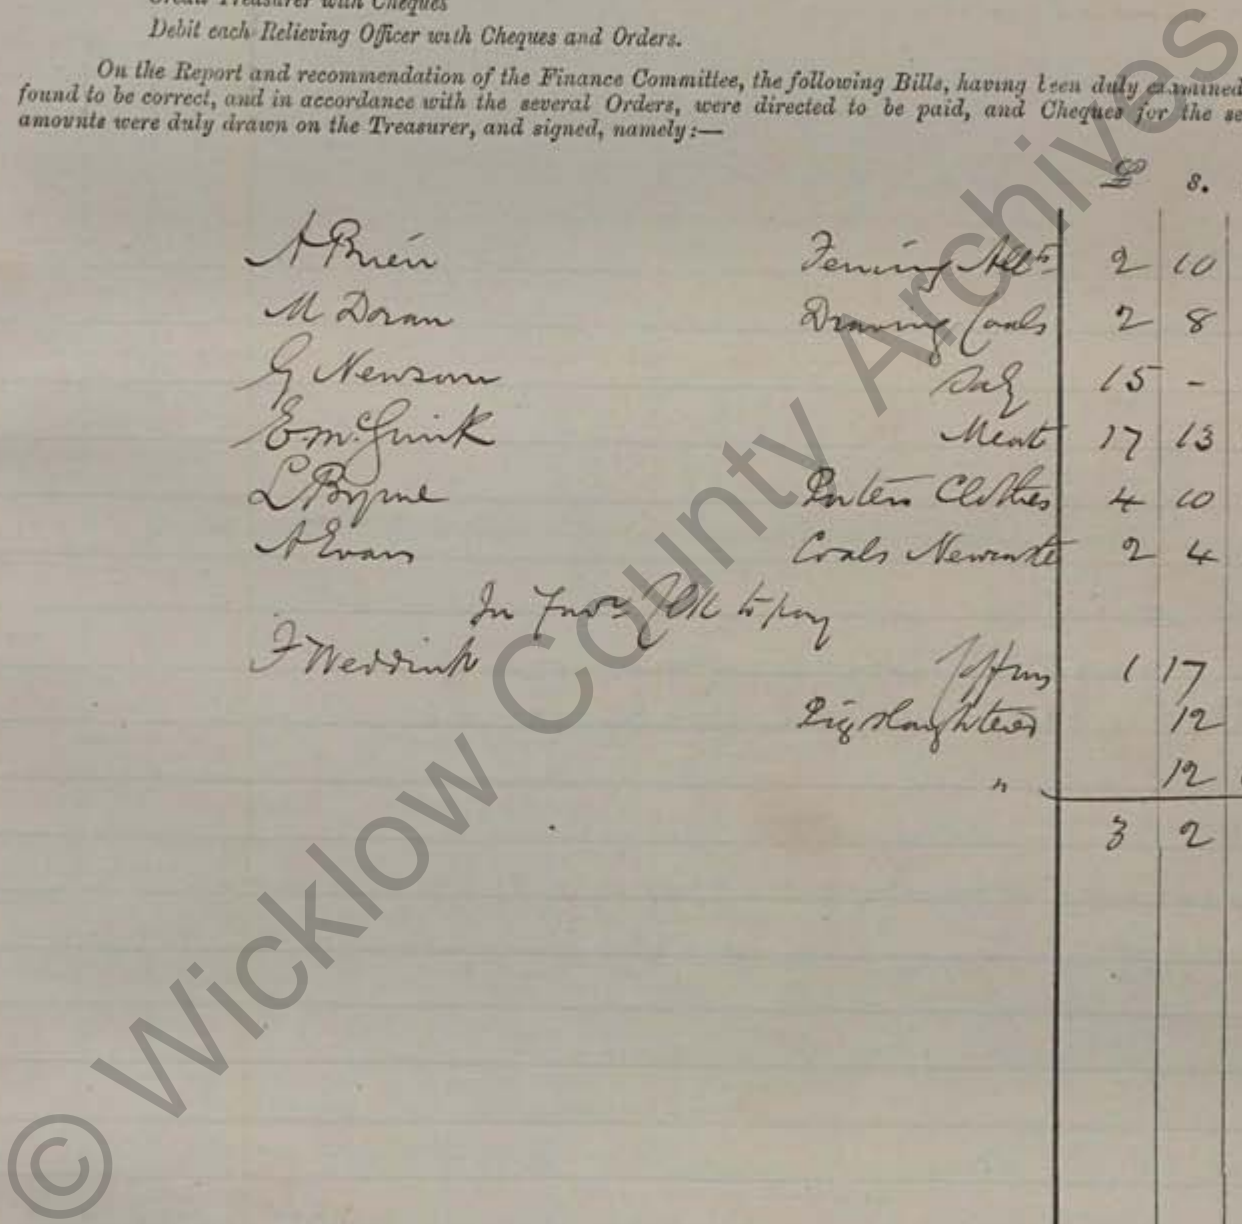 Credit Treasurer with Cheques
Debit each Relieving Officer with Cheques and Orders.
On the Report and recommendation of the Finance Committee, the following Bills, having been duly examined
found to be correct, and in accordance with the several Orders, were directed to be paid, and Cheques for the se
amounts were duly drawn on the Treasurer, and signed, namely:—
£ s.
A Brien 2 10
M Doran Drawing Coals 2 8
G Newsom 15 -
E McGuirk Meat 17 13
L Byrne Porters Clothes 4 10
A Evans Coals Newcastle 2 4
In Favr Clk to pay
F Weddick 1 17
Pig slaughtered 12
" 12
3 2
© Wicklow County Archives